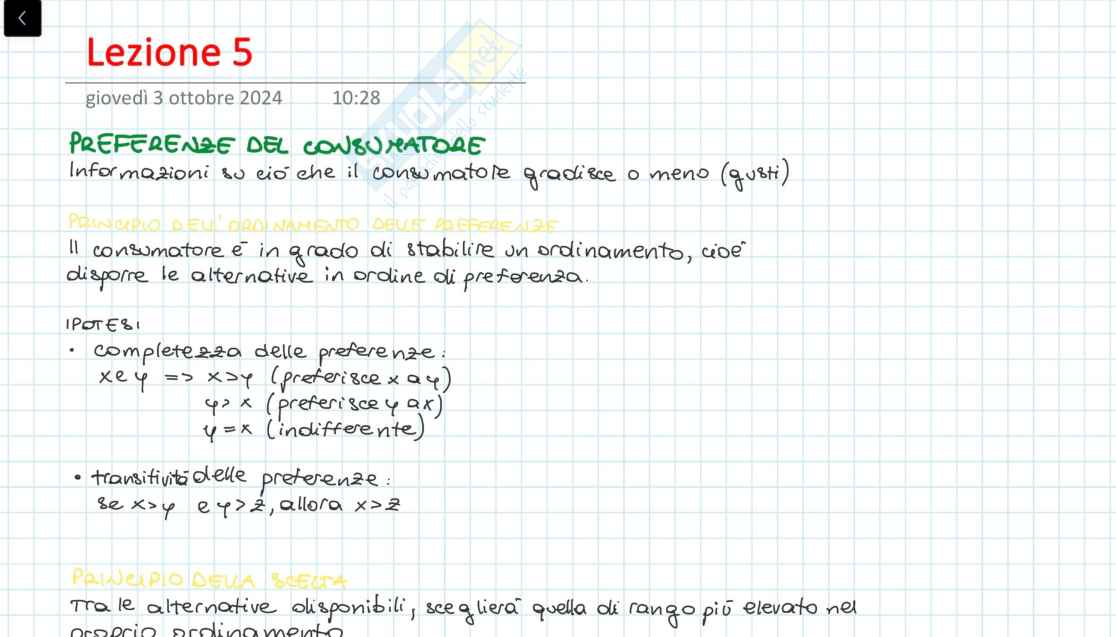 Lezione 5
giovedì 3 ottobre 2024 10:28
PREFERENZE DEL CONSUMATORE
Informazioni su ciò che il consumatore gradisce o meno (gusti)
PRINCIPIO DELL'ORDINAMENTO DELLE PREFERENZE
Il consumatore è in grado di stabilire un ordinamento, cioè
disporre le alternative in ordine di preferenza.
IPOTESI
• completezza delle preferenze:
x e y => x>y (preferisce x a y)
y> x (preferisce y a x)
y = x (indifferente)
• transitività delle preferenze:
se x>y e y>z, allora x>z
PRINCIPIO DELLA SCELTA
Tra le alternative disponibili, sceglierà quella di rango più elevato nel
proprio ordinamento